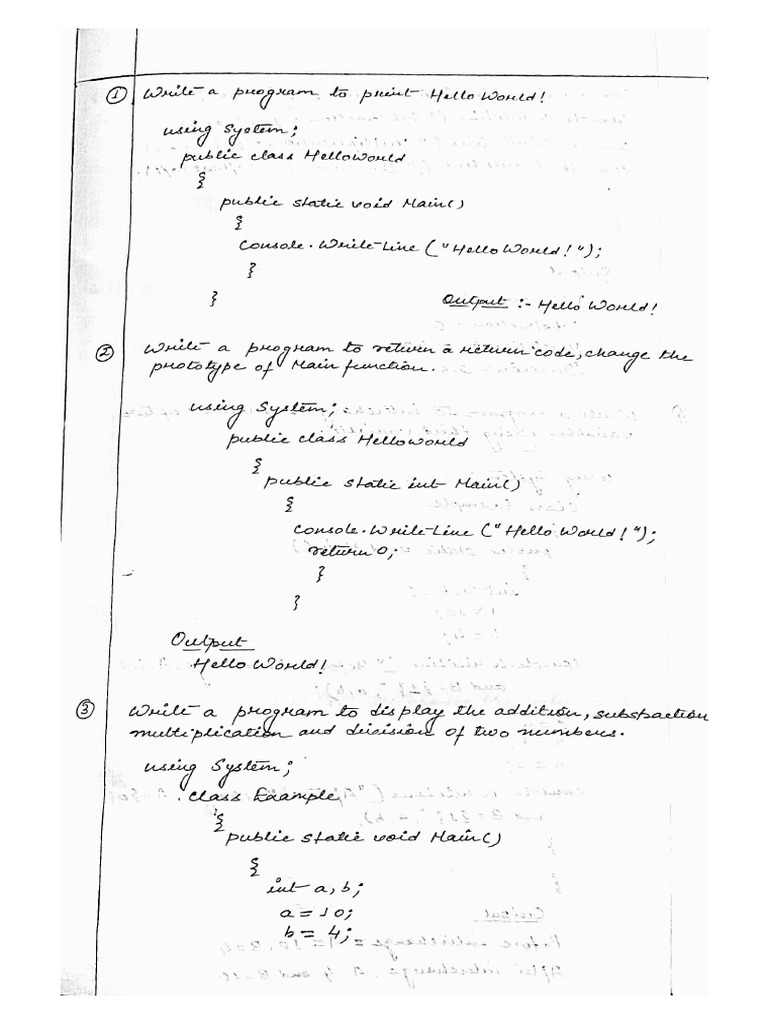 ① Write a program to print Hello World!
using System;
public class HelloWorld
{
public static void Main()
{
Console.Write-Line ("Hello World!");
}
}
Output :- Hello World!
② Write a program to return a return code, change the
prototype of Main function.
using System;
public class HelloWorld
{
public static int Main()
{
Console.Write-Line ("Hello World!");
return 0;
}
}
Output
Hello World!
③ Write a program to display the addition, substraction
multiplication and division of two numbers.
using System;
class Example
{
public static void Main()
{
int a, b;
a = 10;
b = 4;